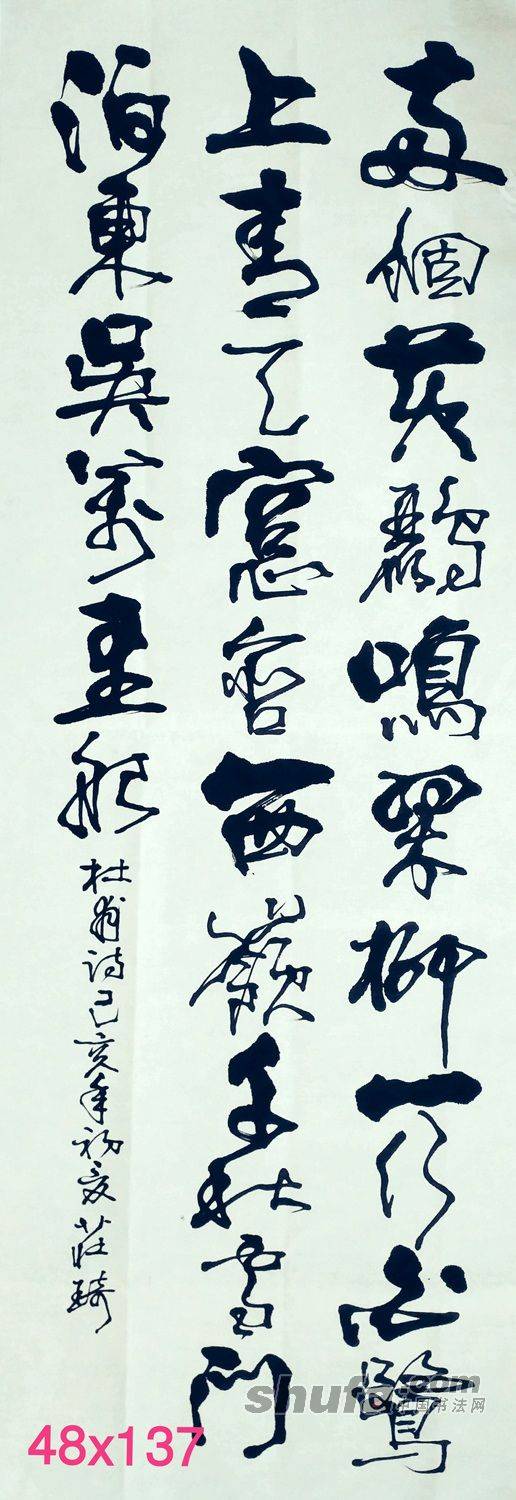 兩個黄鸝鳴翠柳一行白鷺
上青天窻含西嶺千秋雪門
泊東吳萬里船
杜甫詩己亥年初夏莊琦
shufa.com
中国书法网
48x137